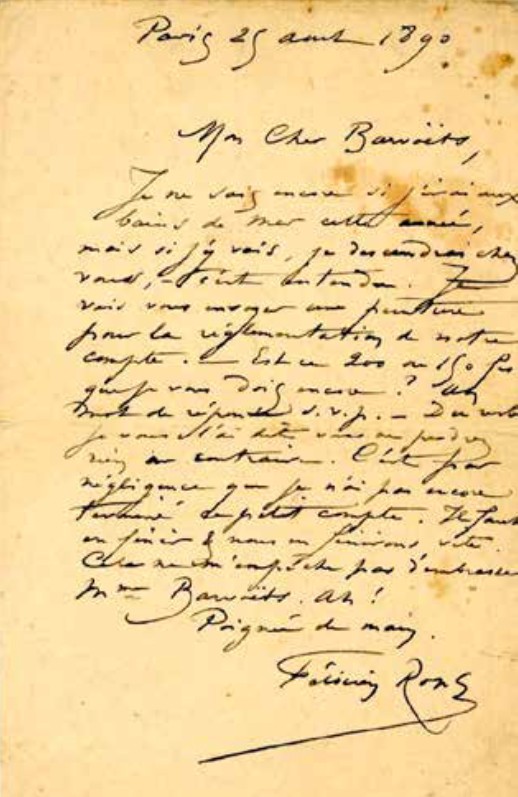 Paris 25 aout 1890
Mon Cher Barwöets,
Je ne sais encore si j'irai aux
bains de mer cette année,
mais si j'y vais, je descendrai chez
vous, – c'est entendu. Je
vais vous envoyer une peinture
pour la réglementation de notre
compte. – Est ce 200 ou 150 frs
que je vous dois encore ? Un
mot de réponse s.v.p. – Du reste
je vous l'ai dit vous ne perdrez
rien au contraire. C'est par
négligence que je n'ai pas encore
terminé ce petit compte. Il faut
en finir & nous en finirons vite.
Cela ne m'empêche pas d'embrasser
Mme Barwöets. Ah !
Poignée de main.
Félicien Rops